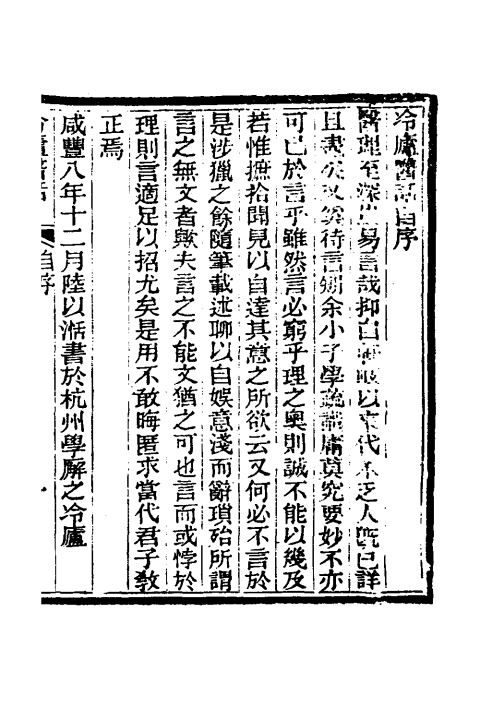 冷廬醫話自序
醫理至深豈易言哉抑自軒岐以來代不乏人既已詳
且盡矣又奚待言矧余小子學疏識庸莫究要妙不亦
可已於言乎雖然言必窮乎理之奧則誠不能以幾及
若惟摭拾聞見以自達其意之所欲云又何必不言於
是涉獵之餘隨筆載述聊以自娛意淺而辭瑣殆所謂
言之無文者歟夫言之不能文猶之可也言而或悖於
理則言適足以招尤矣是用不敢晦匿求當代君子教
正焉
咸豐八年十二月陸以湉書於杭州學廨之冷廬
冷廬醫話
自序
一